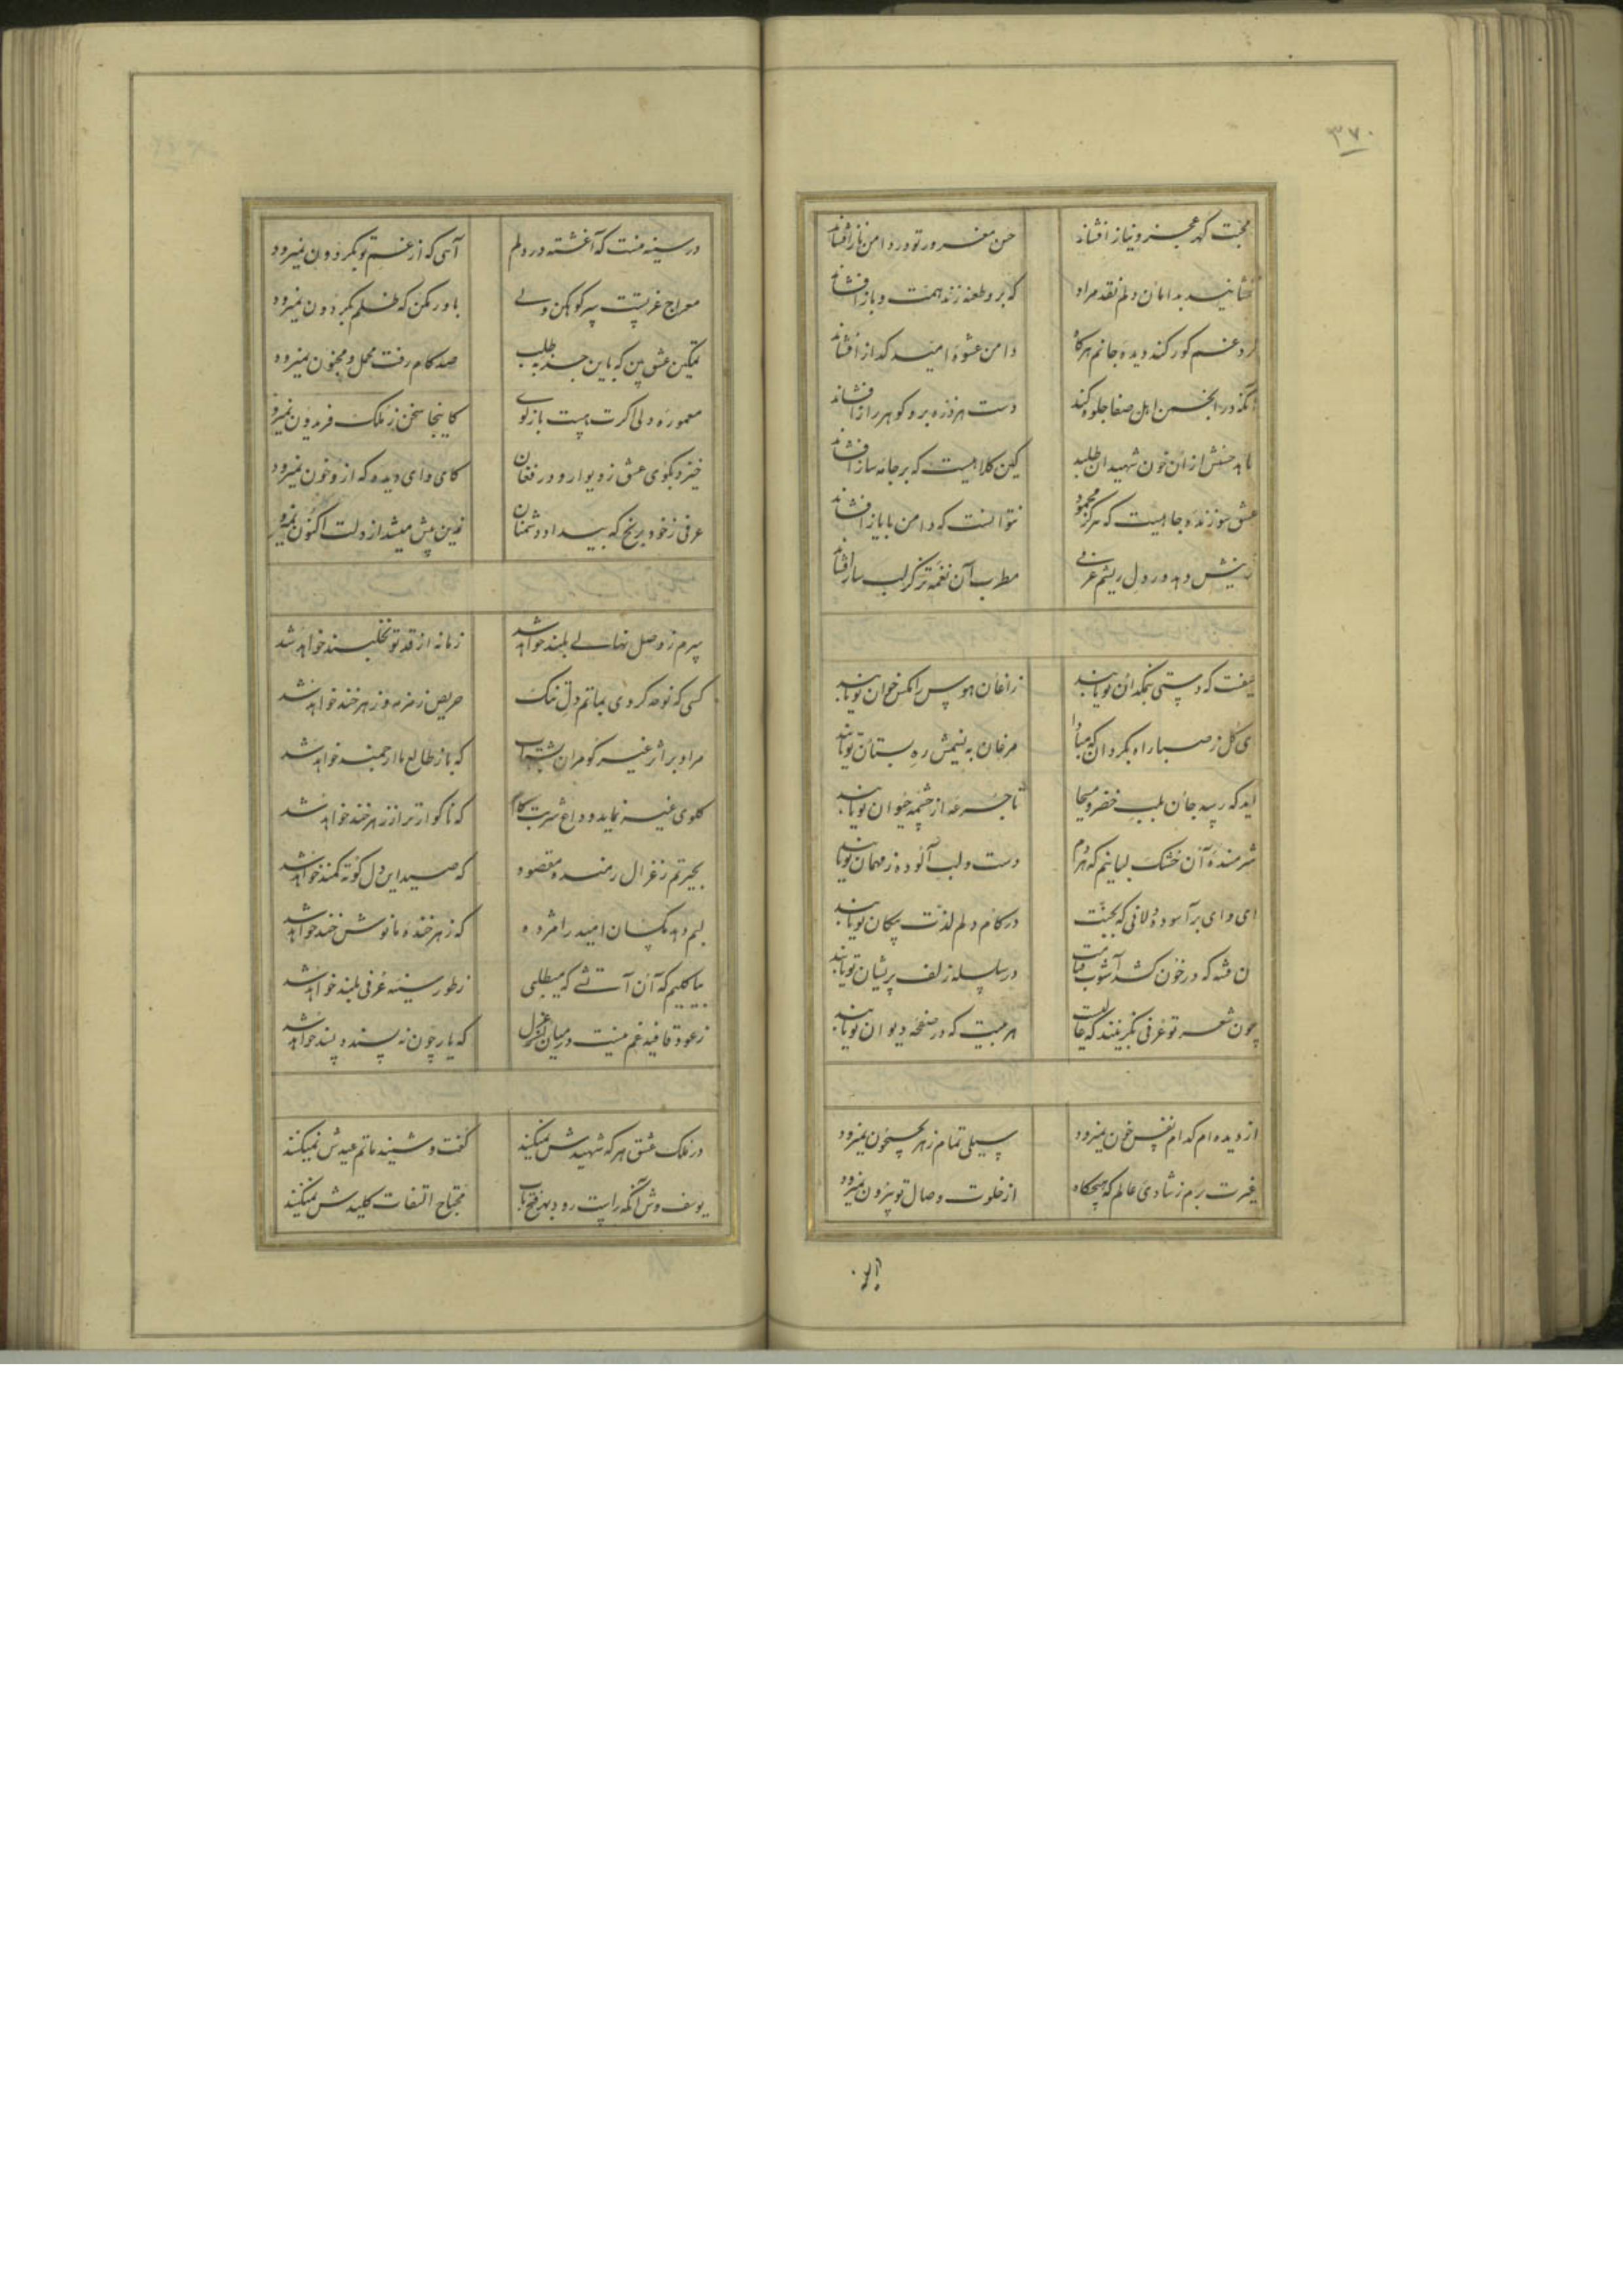 ۳۷۰
محبت گهر عجز و نیاز افشاند
حسن مغرور تو در دامن ناز افشاند
بدامان دلم نقد مراد
که برو طعنه زند همت و باز افشاند
غم کور کند دیده جانم هرگاه
دامن عشوه امید گداز افشاند
در انجمن اهل صفا جلوه کند
دست هر ذره برو گوهر راز افشاند
از آن خون شهیدان طلبد
کین کلاهیست که بر جامه ساز افشاند
عشق سوزنده جاهیست که هرگز محمود
نتوانست که دامن بایاز افشاند
دهد در دل ریشم عرفی
مطرب آن نغمه تر کز لب ساز افشاند
که دستی بنمکدان تو یابند
زاغان هوس را مگس خوان تو یابند
ای گل ز صبا راه بگردان که مبادا
مرغان به نسیمش ره بستان تو یابند
آید که رسد جان بلب خضر و مسیحا
تا جرعه از چشمه حیوان تو یابند
شرمنده آن خشک لبانیم که هر دم
دست و لب آلوده ز مهمان تو یابند
ای وای بر آسوده دلانی که بجنت
در کام دلم لذت پیکان تو یابند
آن فتنه که در خون کشد آشوب قیامت
در سلسله زلف پریشان تو یابند
چون شعر تو عرفی نگزینند که غالیست
هر بیت که در صفحه دیوان تو یابند
از دیده ام کدام نفس خون نمیرود
سیلی تمام زهر بجیحون نمیرود
غیرت برم ز شادی عالم که هیچگاه
از خلوت وصال تو بیرون نمیرود
در سینه منست که آغشته در دلم
آهی که از غم تو بگردون نمیرود
معراج غم پست سر کوهکن ولی
باور مکن که ظلم بگردون نمیرود
تمکین عشق بین که باین جذبه طلب
صد گام رفت محمل و مجنون نمیرود
معموره دلی اگرت هست باز گوی
کاینجا سخن ز ملک فریدون نمیرود
خیزد بکوی عشق ز دیوار و در فغان
کای وای دیده که ازو خون نمیرود
عرفی ز خود برنج که بیداد دشمنان
زین پیش میشد از دلت اکنون نمیرود
پرم ز وصل نهالی بلند خواهد شد
زمانه از قد تو نخلبند خواهد شد
کسی که نوحه کردی بماتم دل تنگ
حریص زمزمه و زهرخند خواهد شد
مراد بر اثر غیر کو مران بشتاب
که باز طالع ما ارجمند خواهد شد
گلوی غیر نماید وداع شربت کام
که ناگوارتر از زهرخند خواهد شد
بحیرتم ز غزال رمنده مقصود
که صید این دل کوته کمند خواهد شد
لبم دهد مگسان امید را مژده
که زهرخنده ما نوش خند خواهد شد
بیا کلیم که آن آتشی که میطلبی
ز طور سینه عرفی بلند خواهد شد
ز عود قافیه غم نیست در میان غزل
که یار چون نه پسندد پسند خواهد شد
در ملک عشق هر که شهیدش نمیکنند
گفت و شنید ماتم عیدش نمیکنند
یوسف وش آنکه راست رود بهر فتح باب
محتاج التفات کلیدش نمیکنند